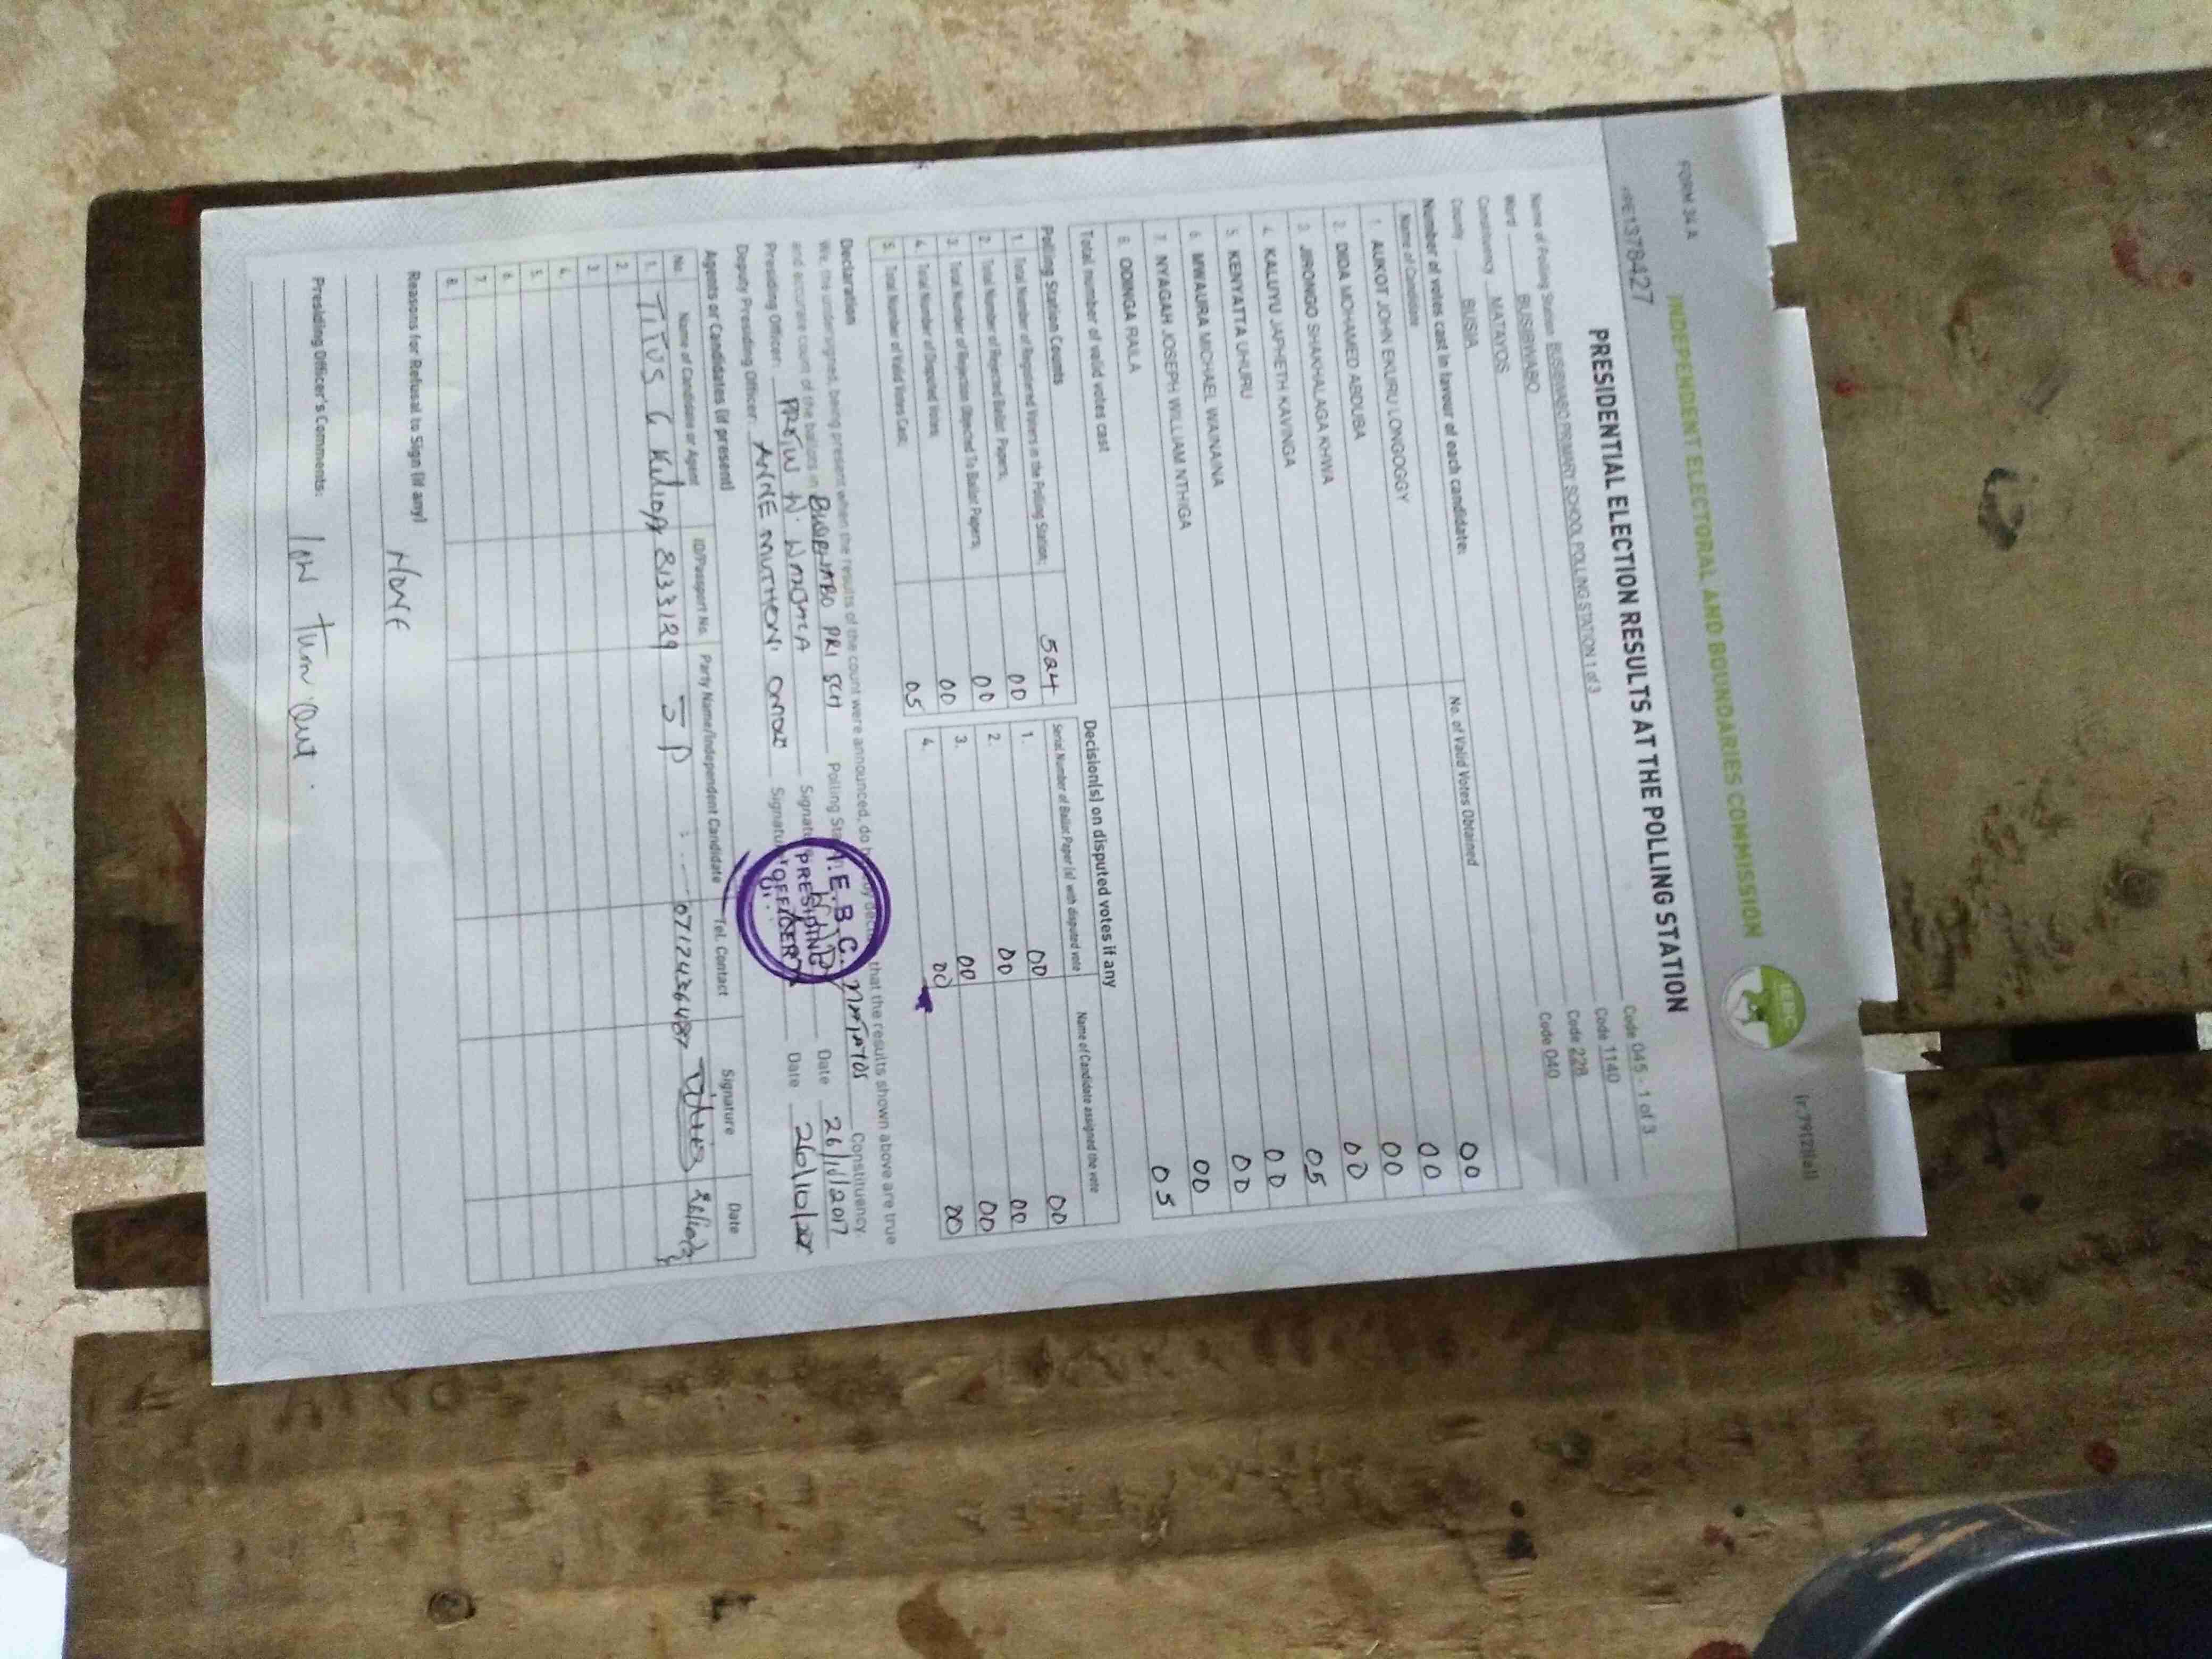 FORM 34 A
(r.79(2)(a))
INDEPENDENT ELECTORAL AND BOUNDARIES COMMISSION
IEBC
PRESIDENTIAL ELECTION RESULTS AT THE POLLING STATION
Name of Polling Station BUSIBWABO PRIMARY SCHOOL POLLING STATION 1 of 3 Code 045 - 1 of 3
Ward BUSIBWABO Code 1140
Constituency MATAYOS Code 228
County BUSIA Code 040
Number of votes cast in favour of each candidate:
Name of Candidate No. of Valid Votes Obtained
1. AUKOT JOHN EKURU LONGOGGY 00
2. DIDA MOHAMED ABDUBA 00
3. JIRONGO SHAKHALAGA KHWA 00
4. KALUYU JAPHETH KAVINGA 00
5. KENYATTA UHURU 05
6. MWAURA MICHAEL WAINAINA 00
7. NYAGAH JOSEPH WILLIAM NTHIGA 00
8. ODINGA RAILA 00
Total number of valid votes cast 05
Polling Station Counts
1. Total Number of Registered Voters in the Polling Station; 524
2. Total Number of Rejected Ballot Papers; 00
3. Total Number of Rejection Objected To Ballot Papers; 00
4. Total Number of Disputed Votes; 00
5. Total Number of Valid Votes Cast; 05
Decision(s) on disputed votes if any
Serial Number of Ballot Paper (s) with disputed vote Name of Candidate assigned the vote
1. 00 00
2. 00 00
3. 00 00
4. 00 00
Declaration
We, the undersigned, being present when the results of the count were announced, do that the results shown above are true
and accurate count of the ballots in BUSIBWABO PRI SCH Polling MATAYOS Constituency.
Presiding Officer: Date 26/10/2017
Deputy Presiding Officer: ANNE MUTHONI Date
I.E.B.C.
PRESIDING
OFFICER
Agents or Candidates (if present)
No. Name of Candidate or Agent ID/Passport No. Party Name/Independent Candidate Tel. Contact Signature Date
1. TITUS G 8133129 JP 0712436487
2.
3.
4.
5.
6.
7.
8.
Reasons for Refusal to Sign (if any) NONE
Presiding Officer's Comments: turn out.